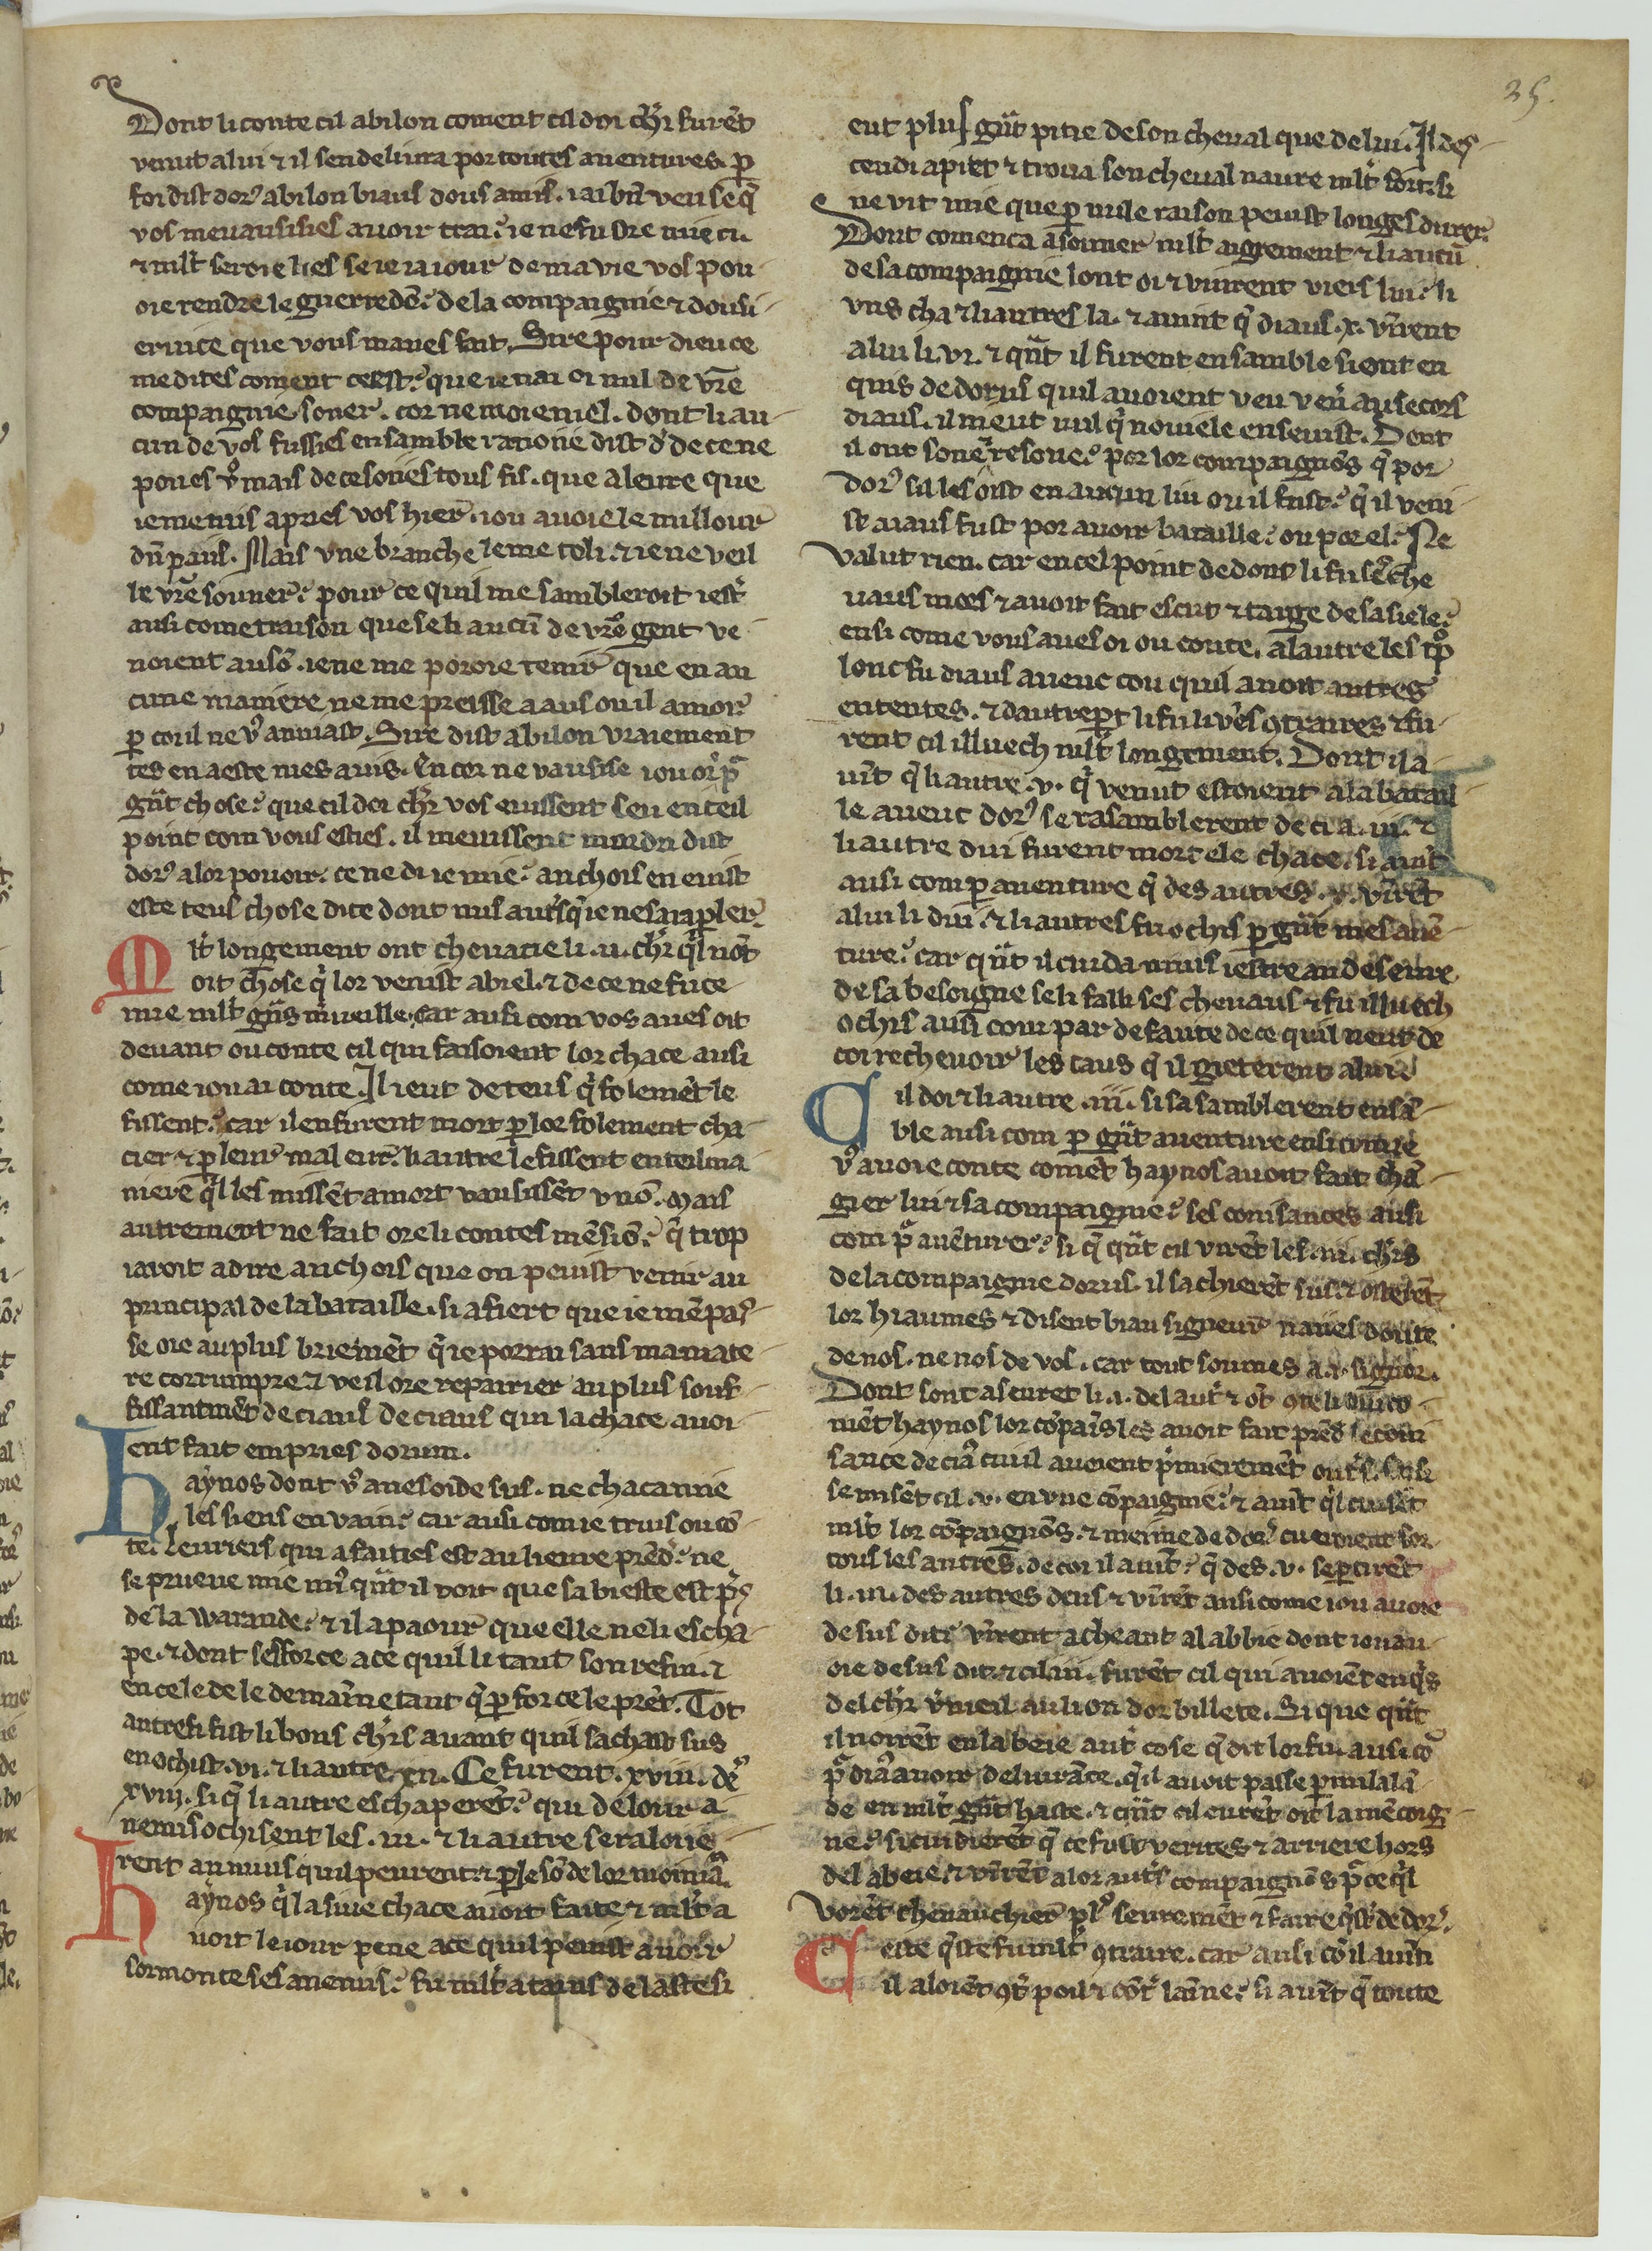 25.
Dont li conte cil abilon coment cil doi chr̃ furẽt
venut a lui ⁊ il sen deliura por toutes auentures. ꝑ
foi dist dorꝰ abilon biaus dous amis. iai bñ veu se q̃
vos me vausisies auoir trai.
⁊ mlt̃ seroie lies se ie ia iour de ma vie vos pou
oie rendre le guerredõ. de la compaignie ⁊ dou si
eruice que vous maues fait. Sire pour dieu ce
me dites coment ce est. que ie nai oi nul de vr̃e
compaignie soner. cor ne moieniel. dont li au
cun de vos fussies ensamble
poues vꝰ mais de ce soiies tous fis. que a leure que
ie me mis apries vos hier. iou auoie le millour
dũ paus. Mais vne branche le me toli. ⁊ ie ne veil
le vr̃e souner. pour ce quil me sambleroit iestr̃
ausi come traison que se li aucũ de vr̃e gent ve
noient au sõ. ie ne me poroie tenir que en au
cune maniere ne me preisse a aus ou il a mor.
ꝑ coi il ne vꝰ anuiast. Sire dist abilon vraiement
tes en a este mes auis. Encor ne vausise iou
gñt chose. que cil doi chr̃ vos euissent seu en teil
point com vous esties. il meuissent mourdri dist
dorꝰ a lor pouoir. ce ne di ie mie. anchois en euist
este teus chose dite dont
Mlt̃ longement ont cheuacie li .ii. chr̃
oit chose q̃ lor venist a biel. ⁊ de ce ne fu ce
mie mlt̃ gñs mueille. Car ausi com vos aues oit
deuant ou conte cil qui faisoient lor chace ausi
come iou ai conte. Il i eut de teus q̃ folemẽt le
fissent. car il en furent mort ꝑ lor folement cha
cier ⁊ ꝑ leur mal eur. li autre le fissent en teil ma
niere q̃l les missẽt a mort vausissẽt v nõ. Mais
autrement ne fait ore li contes mẽsiõ. q̃ trop
i aroit a dire anchois que on peuist venir au
principal de la bataille. si afiert que ie mẽ pas
se ore au plus briemẽt q̃ ie porrai sans ma mate
re corrumpre ⁊ veil ore repairier au plus souf
fissantmẽt de ciaus de ciaus qui la chace auoi
ent fait empries dorum.
Haynos dont vꝰ aues oi de sus. ne chaca mie
les siens en vain. car ausi com ie truis ou cõ
te. Leuriers qui afaities est au lieure prẽdr̃. ne
se prueue mie mĩꝰ qñt il voit que sa bieste est pr̃s
de la warande. ⁊ il a paour que elle ne li escha
pe. ⁊ dont sefforce a ce quil li taut son refui. ⁊
en cele de le demaĩne tant q̃ ꝑ force le prẽt. Tot
autresi fist li bons chr̃s auant quil sachast sus
en ochist .vi. ⁊ li autre .xii. Ce furent .xviii. de
xviij. si q̃ li autre eschaperẽt. qui de lour a
nemis ochisent les .iii. ⁊ li autre se raloiie
rent au mius quil peurent ⁊ ꝑ le sõ de lor moiniax̃.
Haynos q̃ la siue chace auoit faite ⁊ mlt̃ a
uoit le iour pene a ce quil peuist auoir
sormonte ses anemis. fu mlt̃ atapius de laste si
eut plus gñt pitie de son cheual que de lui. Il des
cendi a piet ⁊ troua son cheual naure mlt̃ fort. si
ne vit mie que ꝑ nule raison peuist longes durer.
Dont comenca a souner mlt̃ aigrement ⁊ li aucũ
de sa compaignie lont oi ⁊ vinrent viers lui. li
vns cha ⁊ li autres la. ⁊ auint q̃ diaus .x. vĩrent
a lui li .vi. ⁊ qñt il furent ensamble si ont en
quis de dorus quil auoient veu venir au secors
diaus. il ni eut nul q̃ nouiele en seuist. Dont
il ont soner resone. por lor compaignõs q̃ por
dorꝰ sil les oist en aucun liu ou il fuist. q̃ il veni
st a iaus fust por auoir bataille. ou por el. Ne
valut rien. car en cel point de dont li fu ses che
uaus mors ⁊ auoit fait escut ⁊ targe de sa siele.
ensi come vous aues oi ou conte. a lautre les trop
lonc fu diaus auenc cou quil auoit autres
ententes. ⁊ dautre ꝑt li fu li vẽs ꝯtraires ⁊ fu
rent cil illuech mlt̃ longement. Dont il a
uĩt q̃ li autre .v. q̃ venut estoient a la batail
le auenc dorꝰ se rasamblerent de ci a .iii. ⁊
li autre dui furent mort ele chace. si auĩt
ausi com ꝑ auenture q̃ des autres .x. vĩrẽt
a lui li dui. ⁊ li autres fu ochis ꝑ gñt mesauẽ
ture. car qñt il cuida mius iestre au deseure
de sa besoigne se li falli ses cheuaus ⁊ fu illuech
ochis ausi com par defaute de ce quil neut de
coi recheuoir les caus q̃ il gieterent a lui.
Cil doi ⁊ li autre .iii. si sasamblerent ensã
ble ausi com ꝑ gñt auenture ensi comme
vꝰ auoie conte comẽt haynos auoit fait chã
gier lui ⁊ sa compaignie. ses conisances ausi
com pr̃ auẽturer. si q̃ qñt cil virẽt les .iii. chr̃s
de la compaignie dorus. il sachierẽt sus. ⁊ osterẽt
lor hiaumes ⁊ disent biau signeur naies doute
de nos. ne nos de vos. car tout soumes a .i. signor.
Dont sont aseuret li .i. del autr̃ ⁊ õt ꝯte li
mẽt haynos lor cõpaĩs les auoit fait prẽdr̃ le coni
sance de
se misẽt cil .v. en vne cõpaignie. ⁊ auĩt
mlt̃ lor cõpaignõs. ⁊ meime de dorꝰ
tous les autres. de coi il auĩt. q̃ des .v. se ꝑtirẽt
li .iii. des autres deus ⁊ vĩrẽt ausi come iou auoie
de sus dit. vĩrent acheant a labbie dont iou au
oie de sus dit. ⁊ cil .iii. furẽt cil qui auoiẽt enq̃s
del chr̃ vermeil au lion dor billete. Si que qñt
il noirẽt en labeie autr̃ cose q̃ dit lor fu. ausi cõ
pr̃ diãa auoir deliurãce. q̃ il auoit passe ꝑ mi la lã
de en mlt̃ gñt haste. ⁊ qñt cil eurẽt oit la mẽcoig
ne. si cuidierẽt q̃ ce fust verites ⁊ arriere hors
del abeie. ⁊ vĩrẽt a lor autr̃s compaignõs pr̃ ce q̃l
vorẽt cheuauchier plꝰ seuremẽt ⁊ faire q̃ste de dorꝰ.
Ceste q̃ste fu mlt̃ ꝯtraire. car ausi cõ il auĩt
il aloiẽt ꝯtr̃ poil ⁊ cõtr̃ laĩne. si auĩt q̃ toute